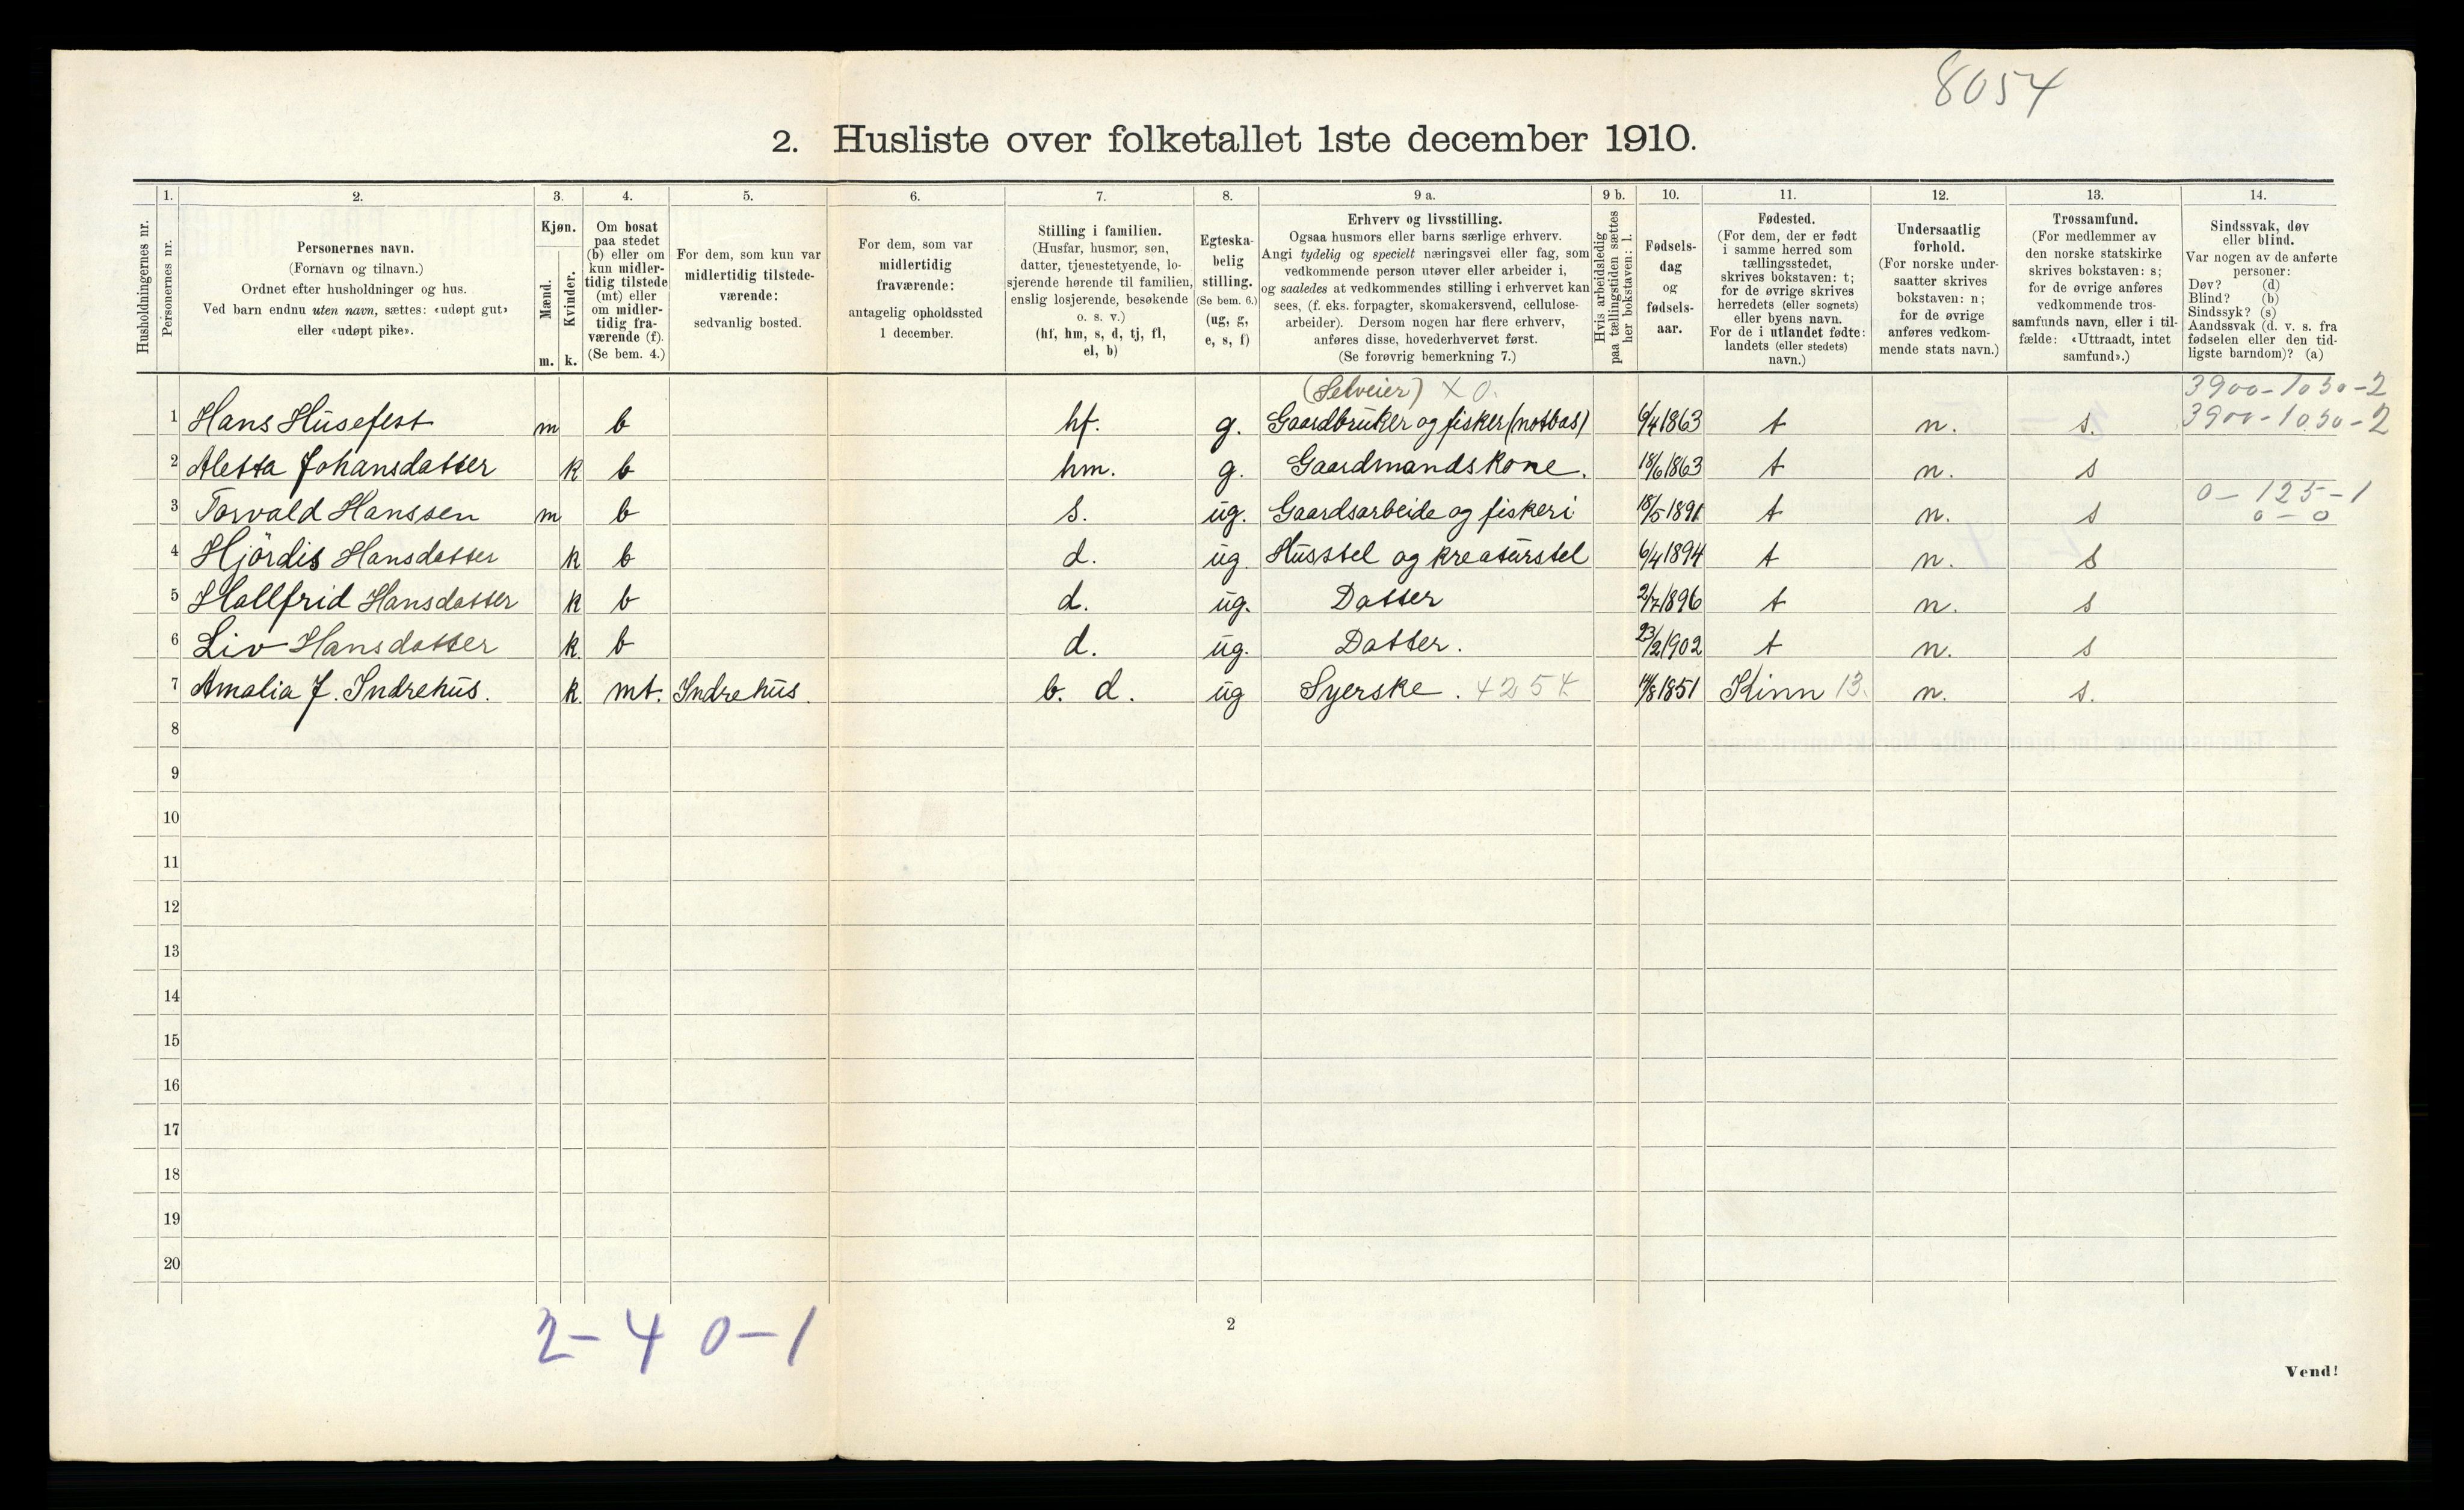 8054
2. Husliste over folketallet 1ste december 1910.
Husholdningernes nr.
1.
Personernes nr.
2.
Personernes navn.
(Fornavn og tilnavn.)
Ordnet efter husholdninger og hus.
Ved barn endnu uten navn, sættes: «udøpt gut»
eller «udøpt pike».
3.
Kjøn.
Mænd.
Kvinder.
m. k.
4.
Om bosat
paa stedet
(b) eller om
kun midler-
tidig tilstede
(mt) eller
om midler-
tidig fra-
værende (f).
(Se bem. 4.)
5.
For dem, som kun var
midlertidig tilstede-
værende:
sedvanlig bosted.
6.
For dem, som var
midlertidig
fraværende:
antagelig opholdssted
1 december.
7.
Stilling i familien.
(Husfar, husmor, søn,
datter, tjenestetyende, lo-
sjerende hørende til familien,
enslig losjerende, besøkende
o. s. v.)
(hf, hm, s, d, tj, fl,
el, b)
8.
Egteska-
belig
stilling.
(Se bem. 6.)
(ug, g,
e, s, f)
9 a.
Erhverv og livsstilling.
Ogsaa husmors eller barns særlige erhverv.
Angi tydelig og specielt næringsvei eller fag, som
vedkommende person utøver eller arbeider i,
og saaledes at vedkommendes stilling i erhvervet kan
sees, (f. eks. forpagter, skomakersvend, cellulose-
arbeider). Dersom nogen har flere erhverv,
anføres disse, hovederhvervet først.
(Se forøvrig bemerkning 7.)
9 b.
Hvis arbeidsledig
paa tællingstiden sættes
her bokstaven: l.
10.
Fødsels-
dag
og
fødsels-
aar.
11.
Fødested.
(For dem, der er født
i samme herred som
tællingsstedet,
skrives bokstaven: t;
for de øvrige skrives
herredets (eller sognets)
eller byens navn.
For de i utlandet fødte:
landets (eller stedets)
navn.)
12.
Undersaatlig
forhold.
(For norske under-
saatter skrives
bokstaven: n;
for de øvrige
anføres vedkom-
mende stats navn.)
13.
Trossamfund.
(For medlemmer av
den norske statskirke
skrives bokstaven: s;
for de øvrige anføres
vedkommende tros-
samfunds navn, eller i til-
fælde: «Uttraadt, intet
samfund».)
14.
Sindssvak, døv
eller blind.
Var nogen av de anførte
personer:
Døv? (d)
Blind? (b)
Sindssyk? (s)
Aandssvak (d. v. s. fra
fødselen eller den tid-
ligste barndom)? (a)
(Selveier) X 0. 3900-1050-2
1 Hans Husefest m b hf. g. Gaardbruker og fisker (notbas) 6/4 1863 t n. s. 3900-1050-2
2 Aletta Johansdatter k b hm. g. Gaardmandskone. 18/6 1863 t n. s
3 Torvald Hanssen m b s. ug. Gaardsarbeide og fiskeri 18/5 1891 t n. s 0-125-1
0-0
4 Hjördis Hansdatter k b d. ug. Husstel og kreaturstel 6/4 1894 t n. s
5 Hallfrid Hansdatter k b d. ug. Datter 2/7 1896 t n. s
6 Liv Hansdatter k. b d. ug. Datter. 23/2 1902 t n. s
7 Amalia J. Indrehus. k. mt. Indrehus. b. d. ug Syerske. 4254 14/8 1851 Kinn 13. n. s.
8
9
10
11
12
13
14
15
16
17
18
19
20
2-4 0-1
2
Vend!